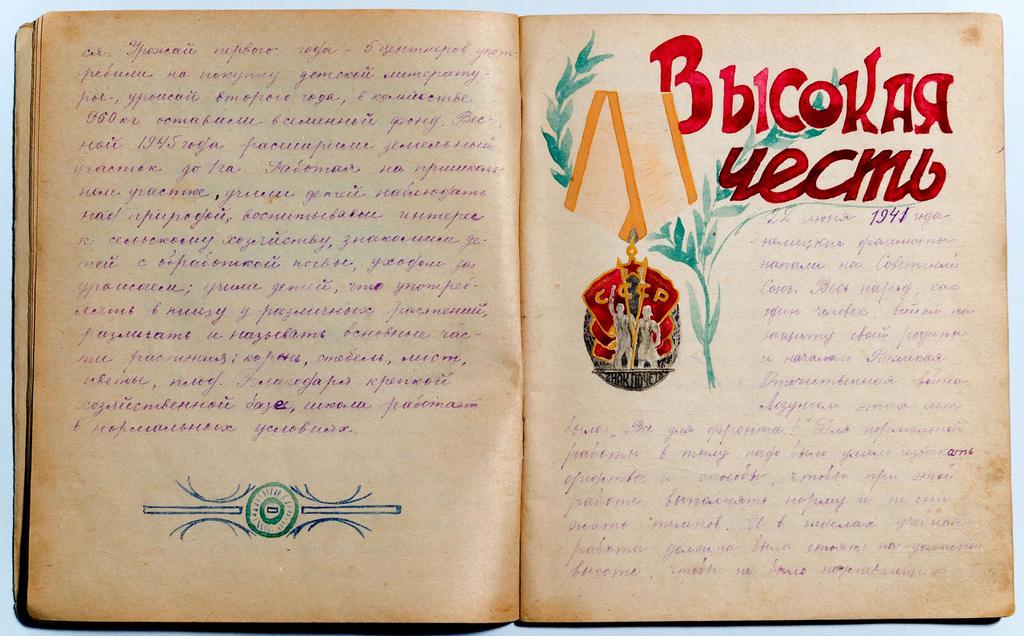 ся. Урожай первого года - 5 центнеров упот-
ребили на покупку детской литерату-
ры, урожай второго года, в количестве
960 кг оставили в семенный фонд. Вес-
ной 1945 года расширили земельный
участок до 1 га. Работая на пришколь-
ном участке, учили детей наблюдать
над природой, воспитывали интерес
к сельскому хозяйству, знакомили де-
тей с обработкой почвы, уходом за
урожаем; учили детей, что употреб-
лять в пищу у различных растений,
различать и называть основные час-
ти растения: корень, стебель, лист,
цветы, плод. Благодаря крепкой
хозяйственной базе, школа работает
в нормальных условиях.
Высокая
честь
СССР
ЗНАК ПОЧЕТА
22 июня 1941 года
немецкие фашисты
напали на Советский
Союз. Весь народ, как
один человек, встал на
защиту своей родины
и началась Великая
Отечественная война.
Лозунгом этих лет
было: „Все для фронта!" Для нормальной
работы в тылу надо было умело изыскать
средства и способы, чтобы при этой
работе выполнять норму и не сни
жать темпов. И в школах учебная
работа должна была стоять на должной
высоте, чтобы не было неуспевающих